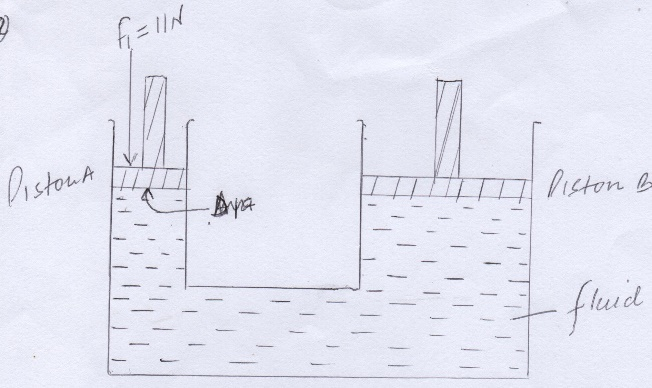 F₁ = 11N
Piston A
Piston B
fluid